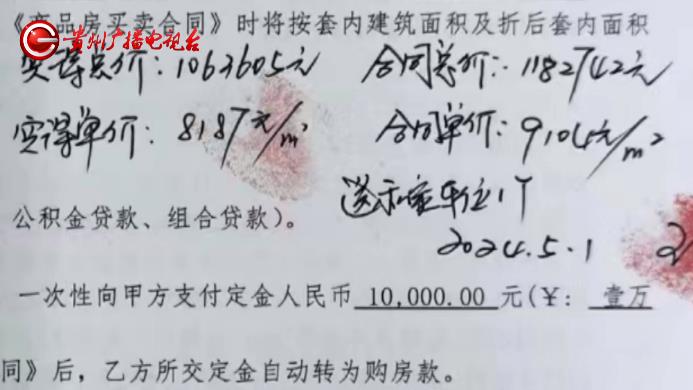 《商品房买卖合同》时将按套内建筑面积及折后套内面积
贵州广播电视台
实得总价：1063605元 合同总价：1182742元
实得单价：8187元/m² 合同单价：9104元/m²
公积金贷款、组合贷款）。
送 车位1个
2024.5.1
一次性向甲方支付定金人民币 10,000.00 元(￥: 壹万
同》后，乙方所交定金自动转为购房款。